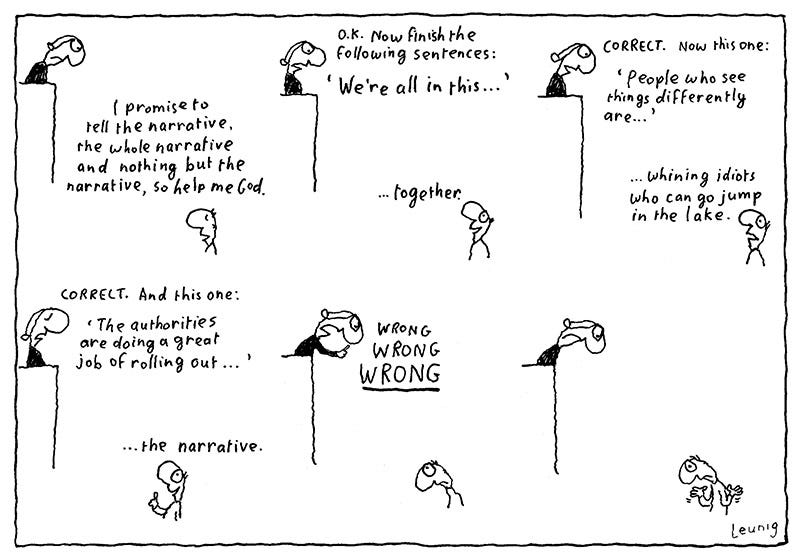 I promise to
tell the narrative,
the whole narrative
and nothing but the
narrative, so help me God.
O.K. Now finish the
following sentences:
'We're all in this...'
...together.
CORRECT. Now this one:
'People who see
things differently
are...'
...whining idiots
who can go jump
in the lake.
CORRECT. And this one:
'The authorities
are doing a great
job of rolling out...'
...the narrative.
WRONG
WRONG
WRONG
Leunig